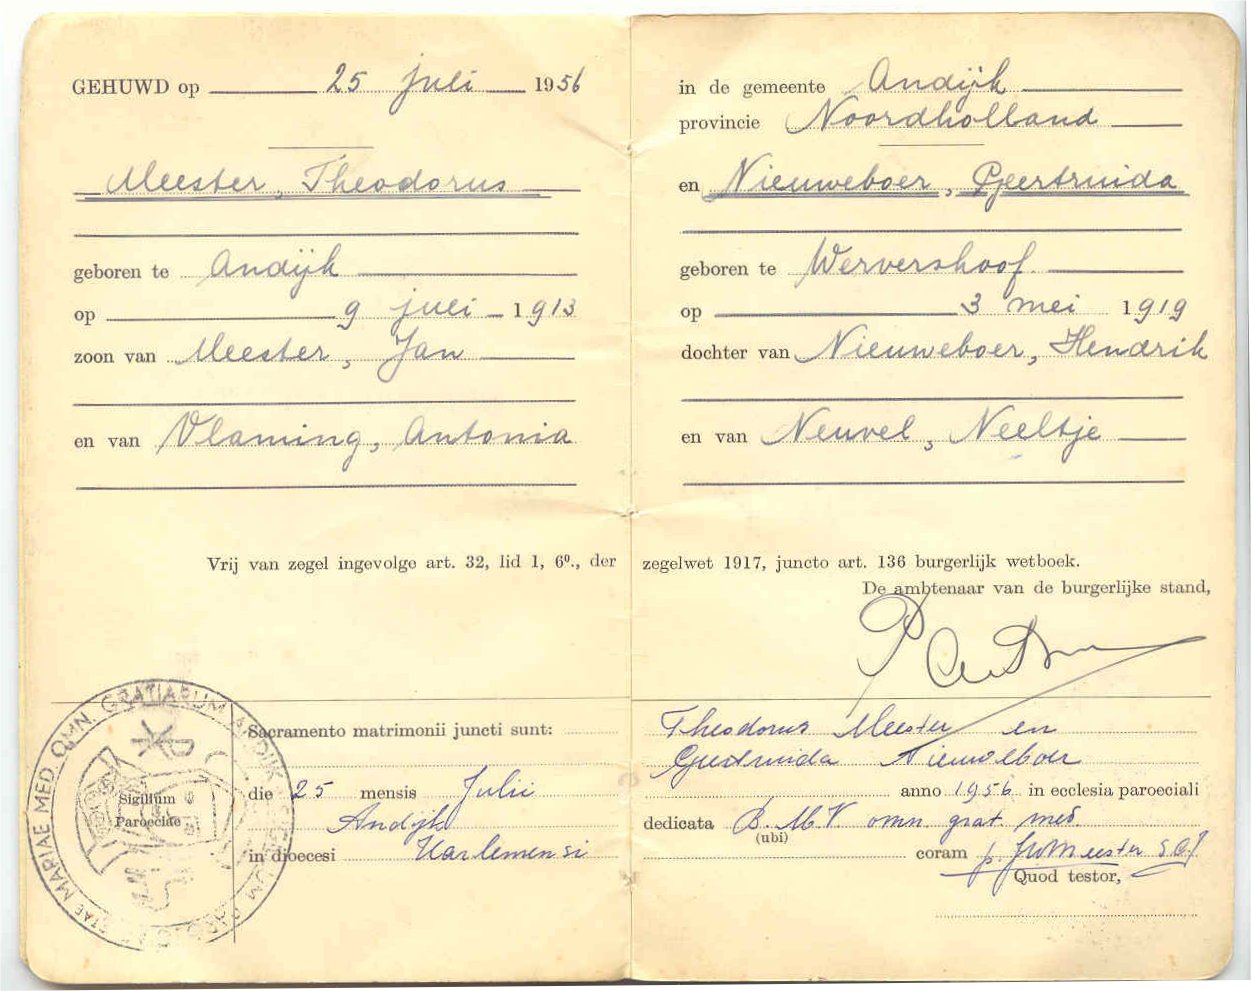 GEHUWD op 25 juli 1956
Meester, Theodorus
geboren te Andijk
op 9 juli 1913
zoon van Meester, Jan
en van Vlaming, Antonia
in de gemeente Andijk
provincie Noordholland
en Nieuweboer, Geertruida
geboren te Wervershoof
op 3 mei 1919
dochter van Nieuweboer, Hendrik
en van Neuvel, Neeltje
Vrij van zegel ingevolge art. 32, lid 1, 6⁰., der zegelwet 1917, juncto art. 136 burgerlijk wetboek.
De ambtenaar van de burgerlijke stand,
Sacramento matrimonii juncti sunt: Theodorus Meester en
Geertruida Nieuweboer
die 25 mensis Julii anno 1956 in ecclesia paroeciali
Andijk dedicata B.M.V omn grat med.
(ubi)
in dioecesi Harlemensi coram p. Meester S.C.J
Quod testor,
MARIAE MED OMN. GRATIARUM ANDIJK
Sigillum
Paroeciae